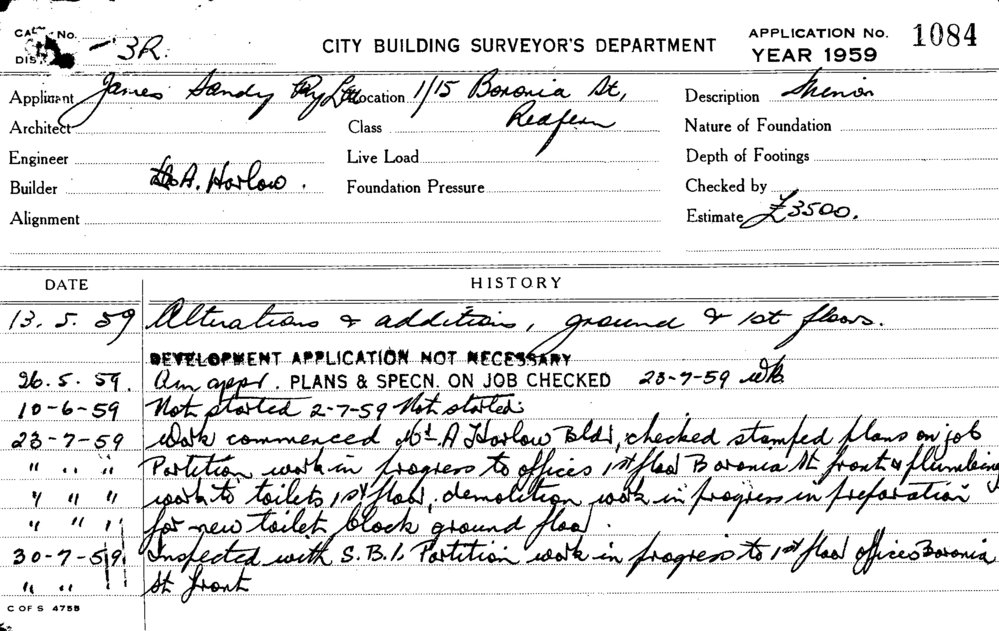 No. 3R. CITY BUILDING SURVEYOR'S DEPARTMENT APPLICATION No. 1084
YEAR 1959
Applicant James Sandy Pty Ltd Location 1/15 Boronia St, Description
Architect Class Redfern Nature of Foundation
Engineer Live Load Depth of Footings
Builder A. Harlow. Foundation Pressure Checked by
Alignment Estimate £3500.
DATE HISTORY
13. 5. 59 Alterations & additions, ground & 1st floors.
DEVELOPMENT APPLICATION NOT NECESSARY
26. 5. 59. appr. PLANS & SPECN. ON JOB CHECKED 23-7-59
10-6-59 Not started 2-7-59 Not started
23-7-59 Work commenced A Harlow Bldr, checked stamped plans on job
" " " Partition work in progress to offices 1st floor Boronia St front & plumbing
" " " work to toilets 1st floor, demolition work in progress in preparation
" " " for new toilet block ground floor.
30-7-59 Inspected with S.B.I. Partition work in progress to 1st floor offices Boronia
" " St front
C OF S 4755